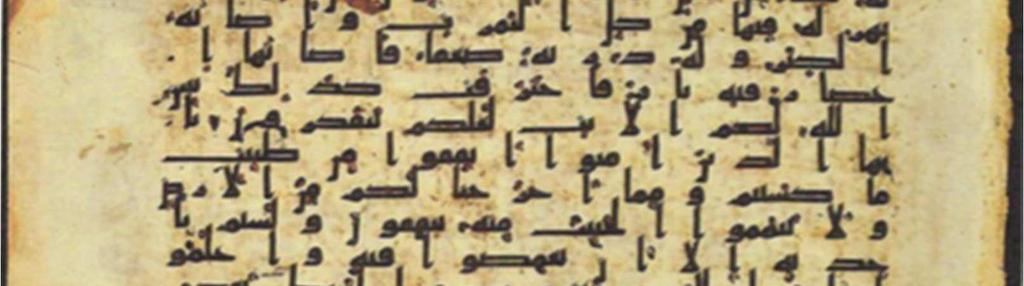 نهر له فيها من كل الثمرت وأصابه
الكبر وله ذرية ضعفا فأصابها إ
عصار فيه نار فاحترقت كذلك يبين
الله لكم الآيت لعلكم تتفكرون يأ
يها الذين آمنوا أنفقوا من طيبت
ما كسبتم ومما أخرجنا لكم من الأرض
ولا تيمموا الخبيث منه تنفقون ولستم بآ
خذيه إلا أن تغمضوا فيه واعلموا